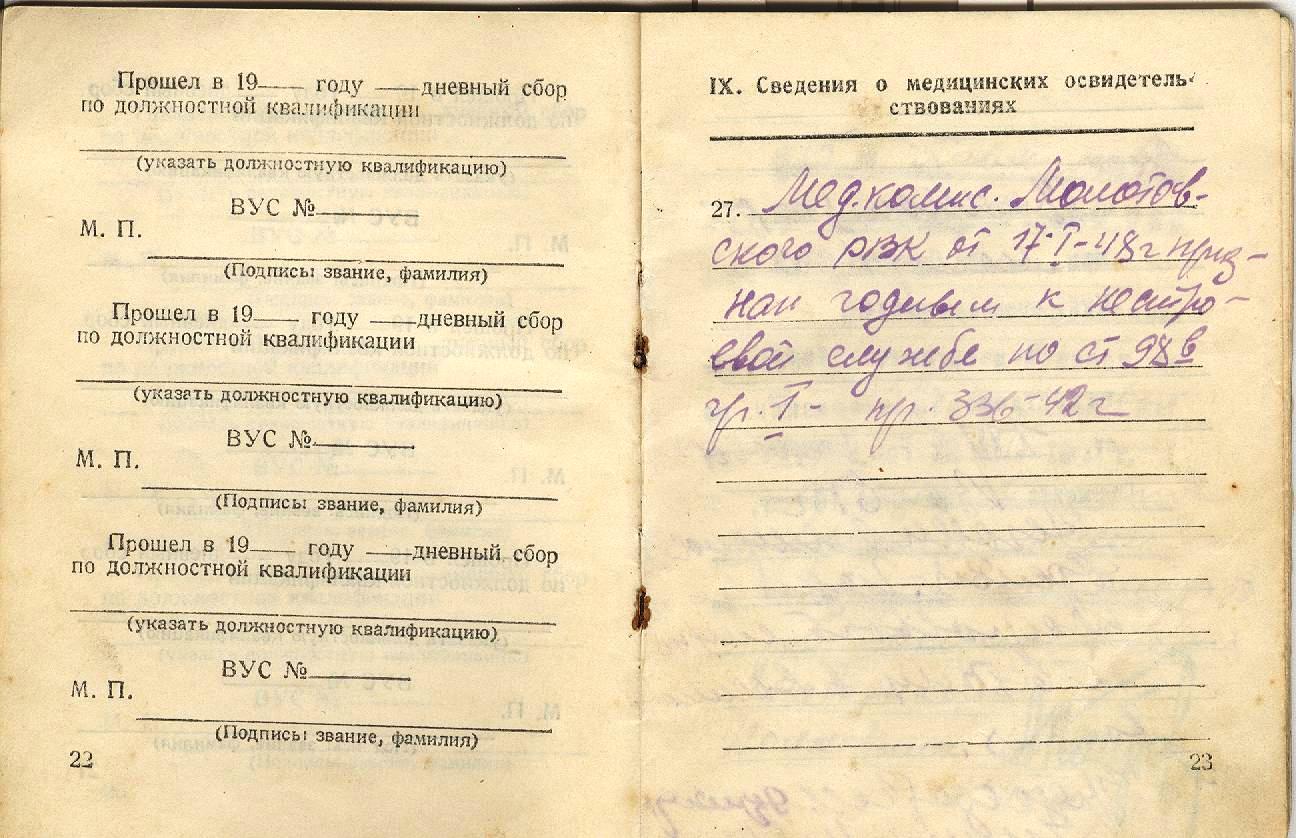 Прошел в 19___ году ___дневный сбор
по должностной квалификации
(указать должностную квалификацию)
ВУС №
М. П.
(Подписы звание, фамилия)
Прошел в 19___ году ___дневный сбор
по должностной квалификации
(указать должностную квалификацию)
ВУС №
М. П.
(Подписы звание, фамилия)
Прошел в 19___ году ___дневный сбор
по должностной квалификации
(указать должностную квалификацию)
ВУС №
М. П.
(Подписы звание, фамилия)
22
IX. Сведения о медицинских освидетель-
ствованиях
27. Мед.комис. Молотов-
ского РВК от 17-I-48г приз-
нан годным к нестро-
евой службе по ст 98 в
гр. I - пр. 336-42г
23